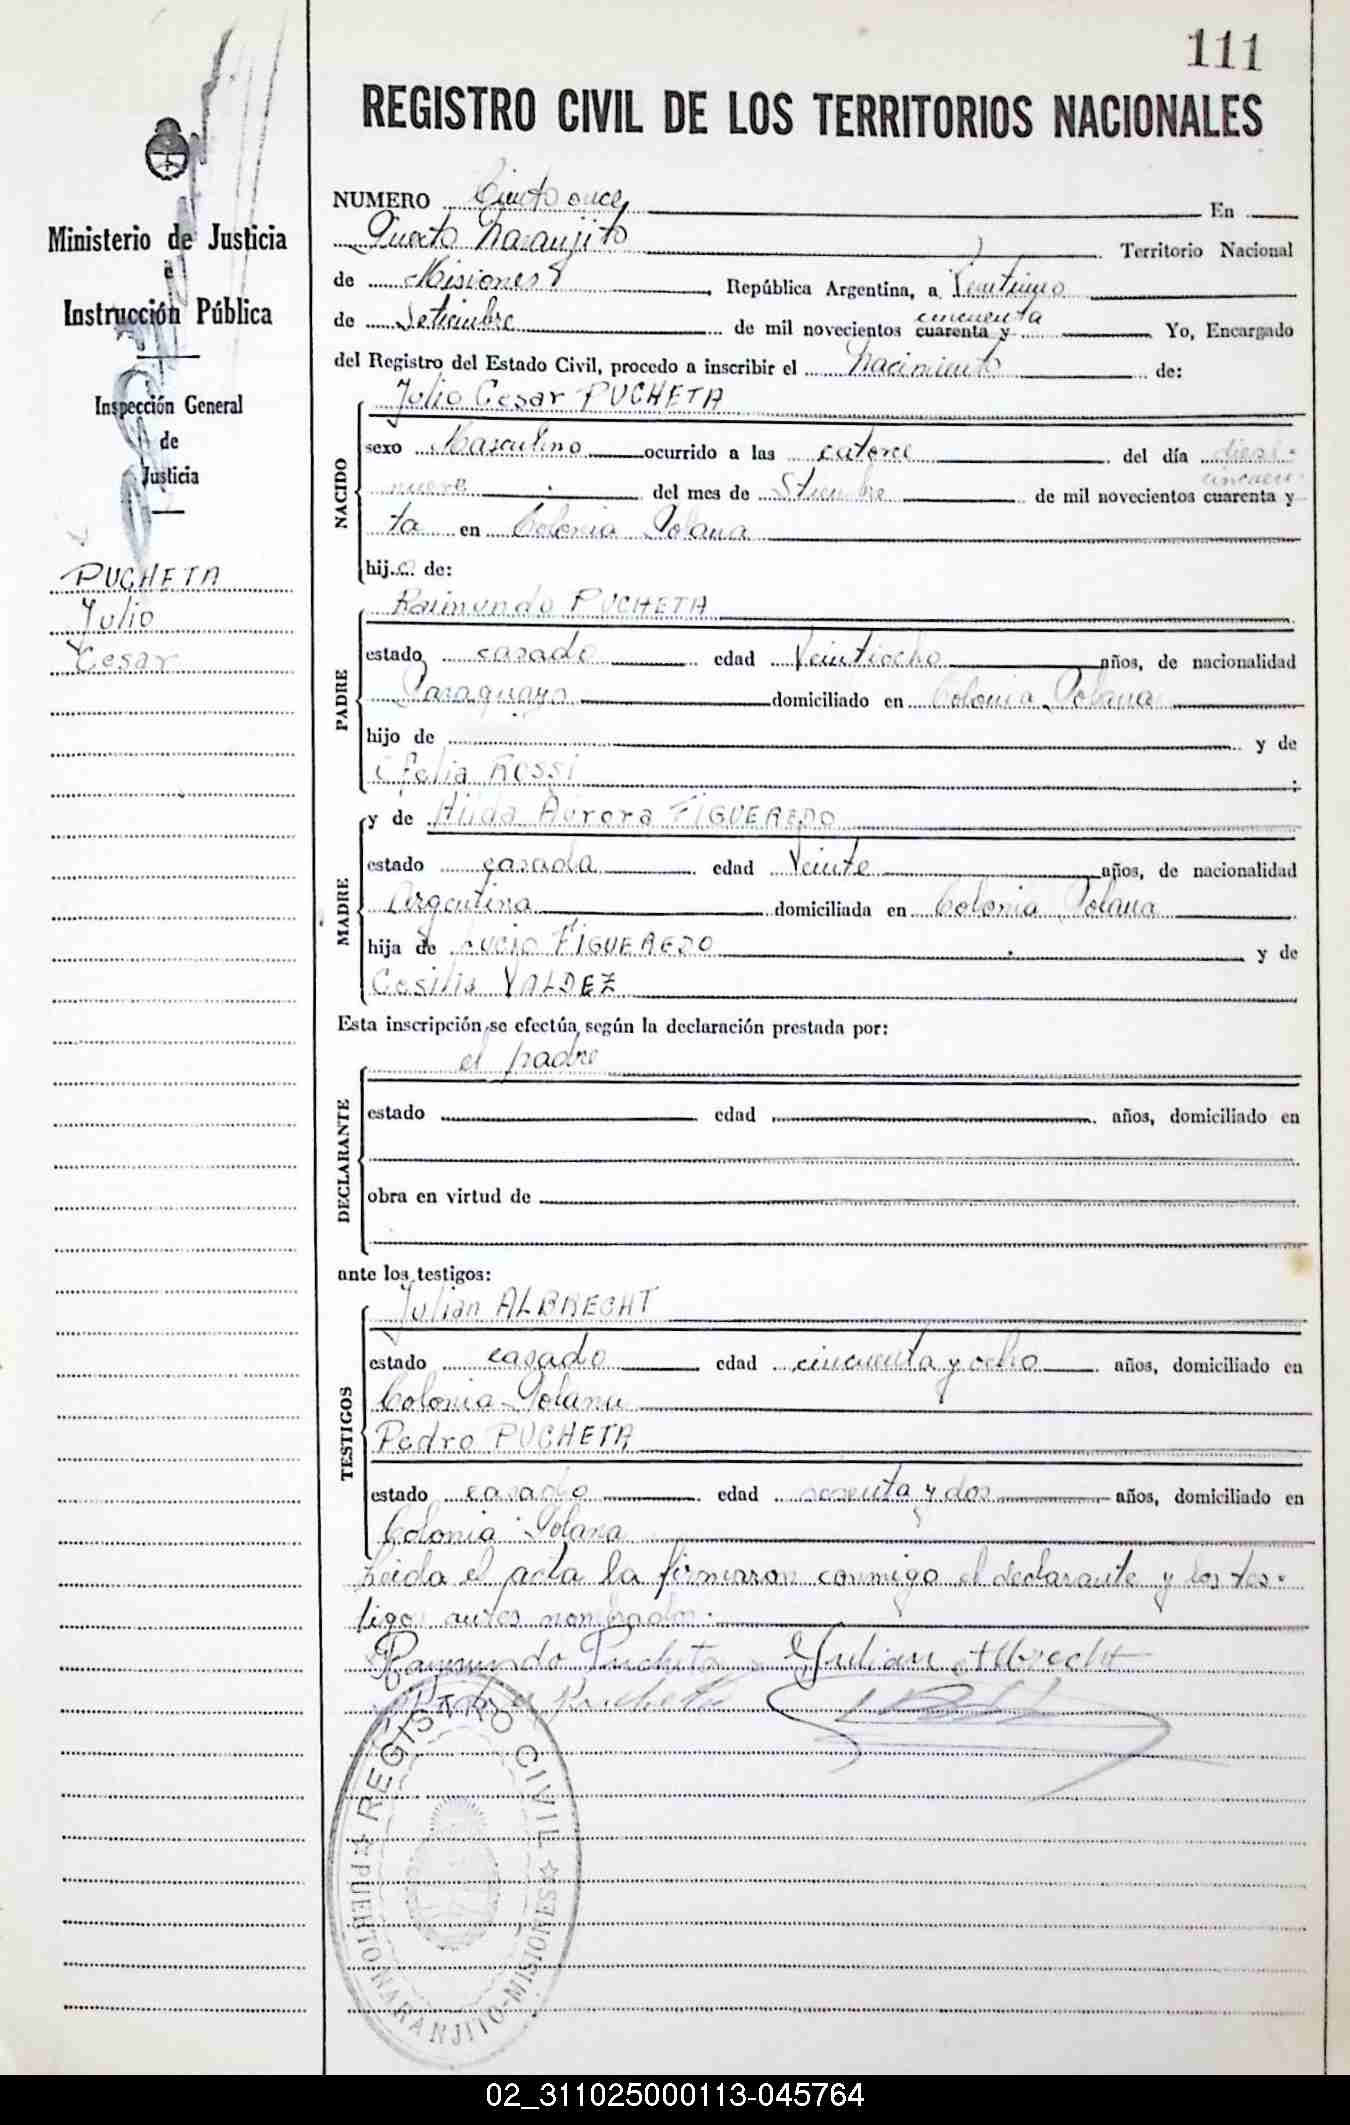 111
REGISTRO CIVIL DE LOS TERRITORIOS NACIONALES
Ministerio de Justicia
e
Instrucción Pública
Inspección General
de
Justicia
PUCHETA
Julio
Cesar
NUMERO Ciento once En
Puerto Naranjito Territorio Nacional
de Misiones República Argentina, a Veintiuno
de Setiembre de mil novecientos cuarenta y cincuenta Yo, Encargado
del Registro del Estado Civil, procedo a inscribir el Nacimiento de:
NACIDO
Julio Cesar PUCHETA
sexo Masculino ocurrido a las catorce del día dieci-
nueve del mes de Stiembre de mil novecientos cuarenta y cincuen-
ta en Colonia Polana
hij.o. de:
PADRE
Raimundo PUCHETA
estado casado edad Veintiocho años, de nacionalidad
Paraguayo domiciliado en Colonia Polana
hijo de y de
Ofelia ROSSI
MADRE
y de Hilda Aurora FIGUEREDO
estado casada edad Veinte años, de nacionalidad
Argentina domiciliada en Colonia Polana
hija de Lucio FIGUEREDO y de
Cesilia VALDEZ
Esta inscripción se efectúa según la declaración prestada por:
DECLARANTE
el padre
estado edad años, domiciliado en
obra en virtud de
ante los testigos:
TESTIGOS
Julian ALBRECHT
estado casado edad cincuenta y ocho años, domiciliado en
Colonia Polana
Pedro PUCHETA
estado casado edad sesenta y dos años, domiciliado en
Colonia Polana
Leida el acta la firmaron conmigo el declarante y los tes-
tigos antes nombrados.
Raymundo Pucheta Julian Albrecht
Pedro Pucheta
REGISTRO CIVIL
PUERTO NARANJITO-MISIONES
02_311025000113-045764